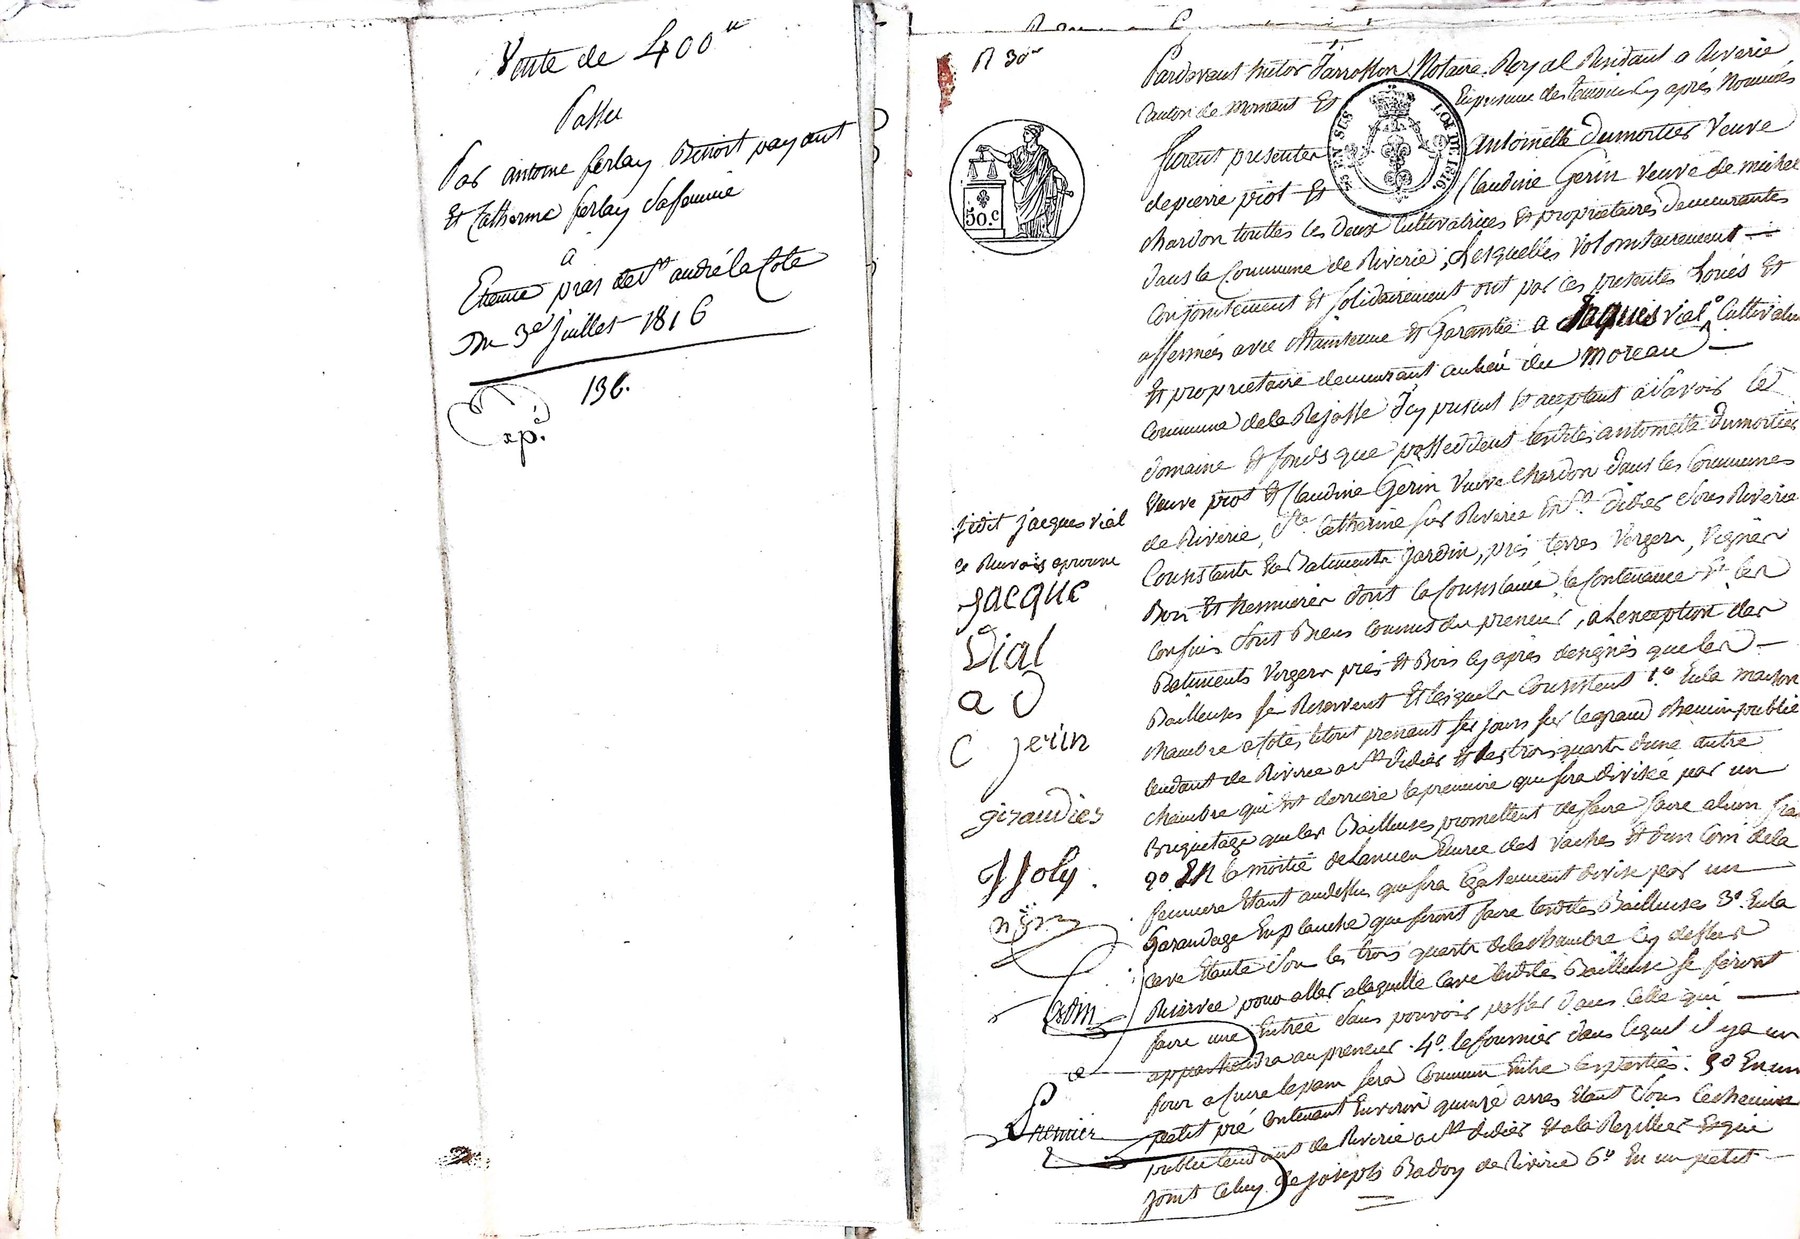 Vente de 400#
Passée
Par antoine ferlay Benoit payant
Et Catherine ferlay Safemme
a
Etienne pras de St andré la Cote
Du 3e Juillet 1816
136.
Exp.é
N 30
50.c
28 EN SUS LOI DE 1816.
Pardevant hector Jarrosson Notaire Royal Residant a Riverie
Canton de mornant Et En presence des temoins Cy après Nommés
furent presentes antoinette dumortier veuve
de pierre piot Et Claudine Gerin veuve de michel
chardon touttes les deux Cultivatrices Et proprietaires demeurantes
dans la Commune de Riverie, Lesquelles volontairement
Conjointement Et solidairement ont par Ces presentes Loués Et
affermés avec Maintenue Et Garantie a Jaques vial Cultivateur
Et proprietaire demeurant au lieu du moreau
Commune de la Rejasse Icy present Et aceptant a sâvoir Le
domaine Et fonds que possedent lesdites antoinette dumortier
veuve piot Et Claudine Gerin veuve chardon dans les Communes
de Riverie, Ste Catherine sur Riverie Et St didier sous Riverie
Consistants En Batiments Jardin, prés terres vergers, vignes
Bois Et hermieres dont la Consistance, la Contenance Et les
Confins sont Biens Connus du preneur, a Lexception des
Batiments vergers prés Et Bois Cy après designés que les
Bailleuses se Reservent Et lesquels Consistent 1.º En la maison
chambre a Cotés letout prenant ses jours sur le grand chemin public
tendant de Riverie a St didier Et des trois quarts d'une autre
chambre qui Est derriere la premiere que sera divisée par un
Briquetage que les Bailleuses promettent de faire faire a leurs frais
2º En la moitié de Lancien Ecurie des vaches Et d'un Coin de la
feniere Etant audessus que sera Egalement divisé par un
Garandage En planche que feront faire lesdites Bailleuses 3º. En la
Cave Etante Sou les trois quarts dela chambre Cy dessus
Reservée pour aller alaquelle Cave lesdites Bailleuse se feront
faire une Entrée sans pouvoir passer dans Celle qui
appartiendra au preneur. 4º. le fournier dans lequel il y a un
four a Cuire le pain sera Commun Entre les parties. 5º En un
petit pré Contenant Environ quinze arres Etant sous le chemin
public tendant de Riverie a St didier Et a la Repillier Et qui
joint Celuy de joseph Badoy de Riverie 6º En un petit
Ledit jacques vial
Ce Renvois aprouvé
jacque
Vial
a D
C jerin
giraudier
Joly.